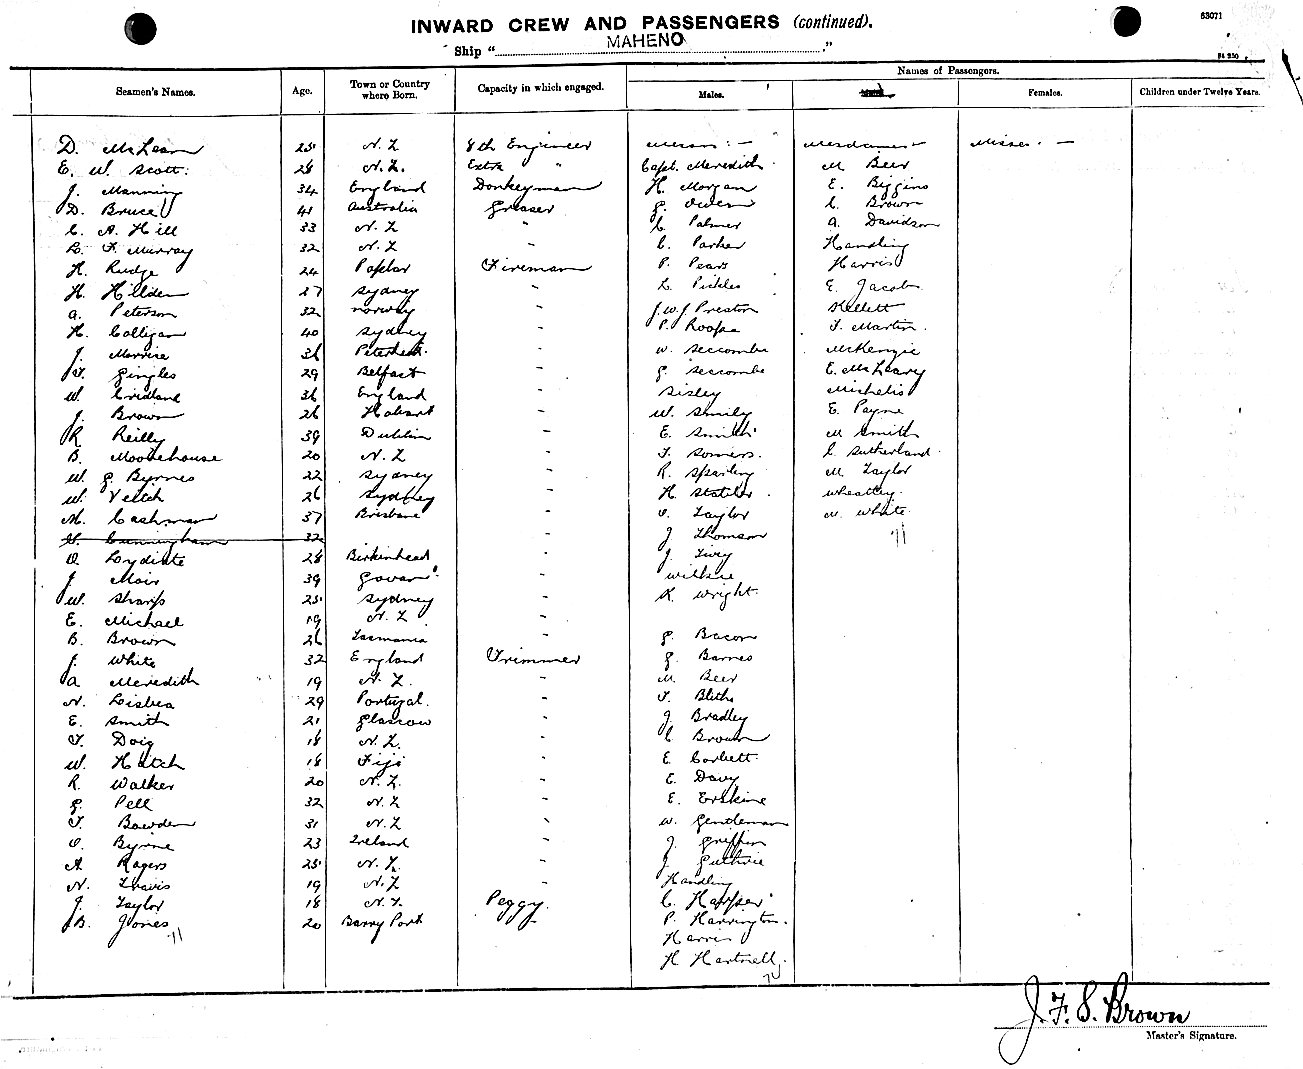 INWARD CREW AND PASSENGERS (continued).
63071
Ship "MAHENO."
Seamen's Names. Age. Town or Country where Born. Capacity in which engaged. Names of Passengers.
Males. Females. Children under Twelve Years.
Messrs :— Mesdames — Misses. —
D. McLean 25 N.Z 8th Engineer
E. W. Scott. 28 N.Z. Extra " Capt. Meredith M Beer
J. Manning 34 England Donkeyman H. Morgan E. Biggins
D. Bruce 41 Australia Greaser G. Owen C. Brown
C. A. Hill 33 N.Z " C Palmer A. Davidson
L. F. Murray 32 N.Z " C. Parker Handling
H. Rudge 24 Poplar Fireman P. Pears Harris
H. Hillden 27 Sydney " L. Pickles E. Jacob
A. Peterson 32 Norway " J.W.J Preston Kellett
H. Colligan 40 Sydney " P. Roope T. Martin.
J. 36 Peterhead. " W. Seccombe McKenzie
T. Gingles 29 Belfast " G. Seccombe E. McLeary
W. Cridland 36 England " Sisley Michelis
J. Brown 26 Hobart " W. Smily E. Payne
R Reilly 39 Dublin " E. Smith M Smith
B. Moorehouse 20 N.Z " T. Somers. C Sutherland.
W. G Byrnes 22 Sydney " R. Sparling M Taylor
W. Veitch 26 Sydney " H. Wheatley.
M. Cashman 37 Brisbane " O. Taylor M. White
H. Cunningham 32 J Thomson
O. Lydiate 28 Birkinhead " J. Tivey
J. Moir 39 Govan " Wilkie
W. Sharp 25 Sydney " K. Wright
E. Michael 19 N.Z "
B. Brown 26 Tasmania " G. Bacon
J. White 32 England Trimmer G. Barnes
A Meredith 19 N.Z. " M Beer
N. Lisbea 29 Portugal. " T. Blithe
E. Smith 21 Glasgow " J Bradley
T. Doig 18 N.Z. " C Brown
W. Hatch 18 Fiji " E. Corbett.
R. Walker 20 N.Z. " E. Davy
G. Pell 32 N.Z " E. Erskine
T. Bowden 31 N.Z " W. Gentleman
O. Byrne 23 Ireland " J. Griffin
A. Rogers 25 N.Z. " J Guthrie
N. Travis 19 N.Z " Handling
J. Taylor 18 N.Z. Peggy. C. Harper
B. Jones 20 Barry Port P. Harrington.
Harris
H Hartnell.
J. F. S. Brown
Master's Signature.